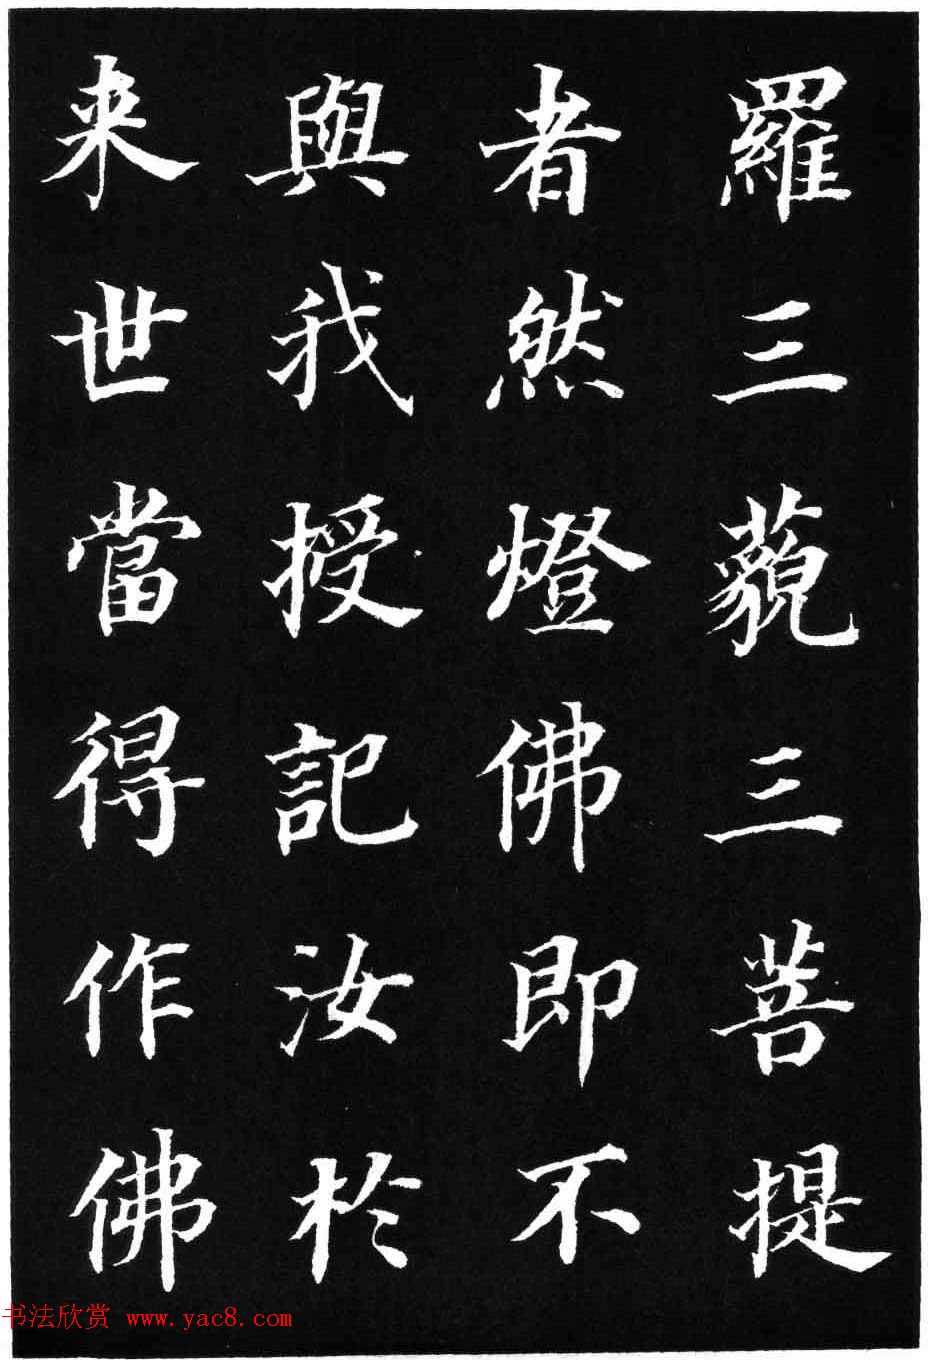 羅三藐三菩提
者然燈佛即不
與我授記汝於
来世當得作佛
书法欣赏 www.yac8.com